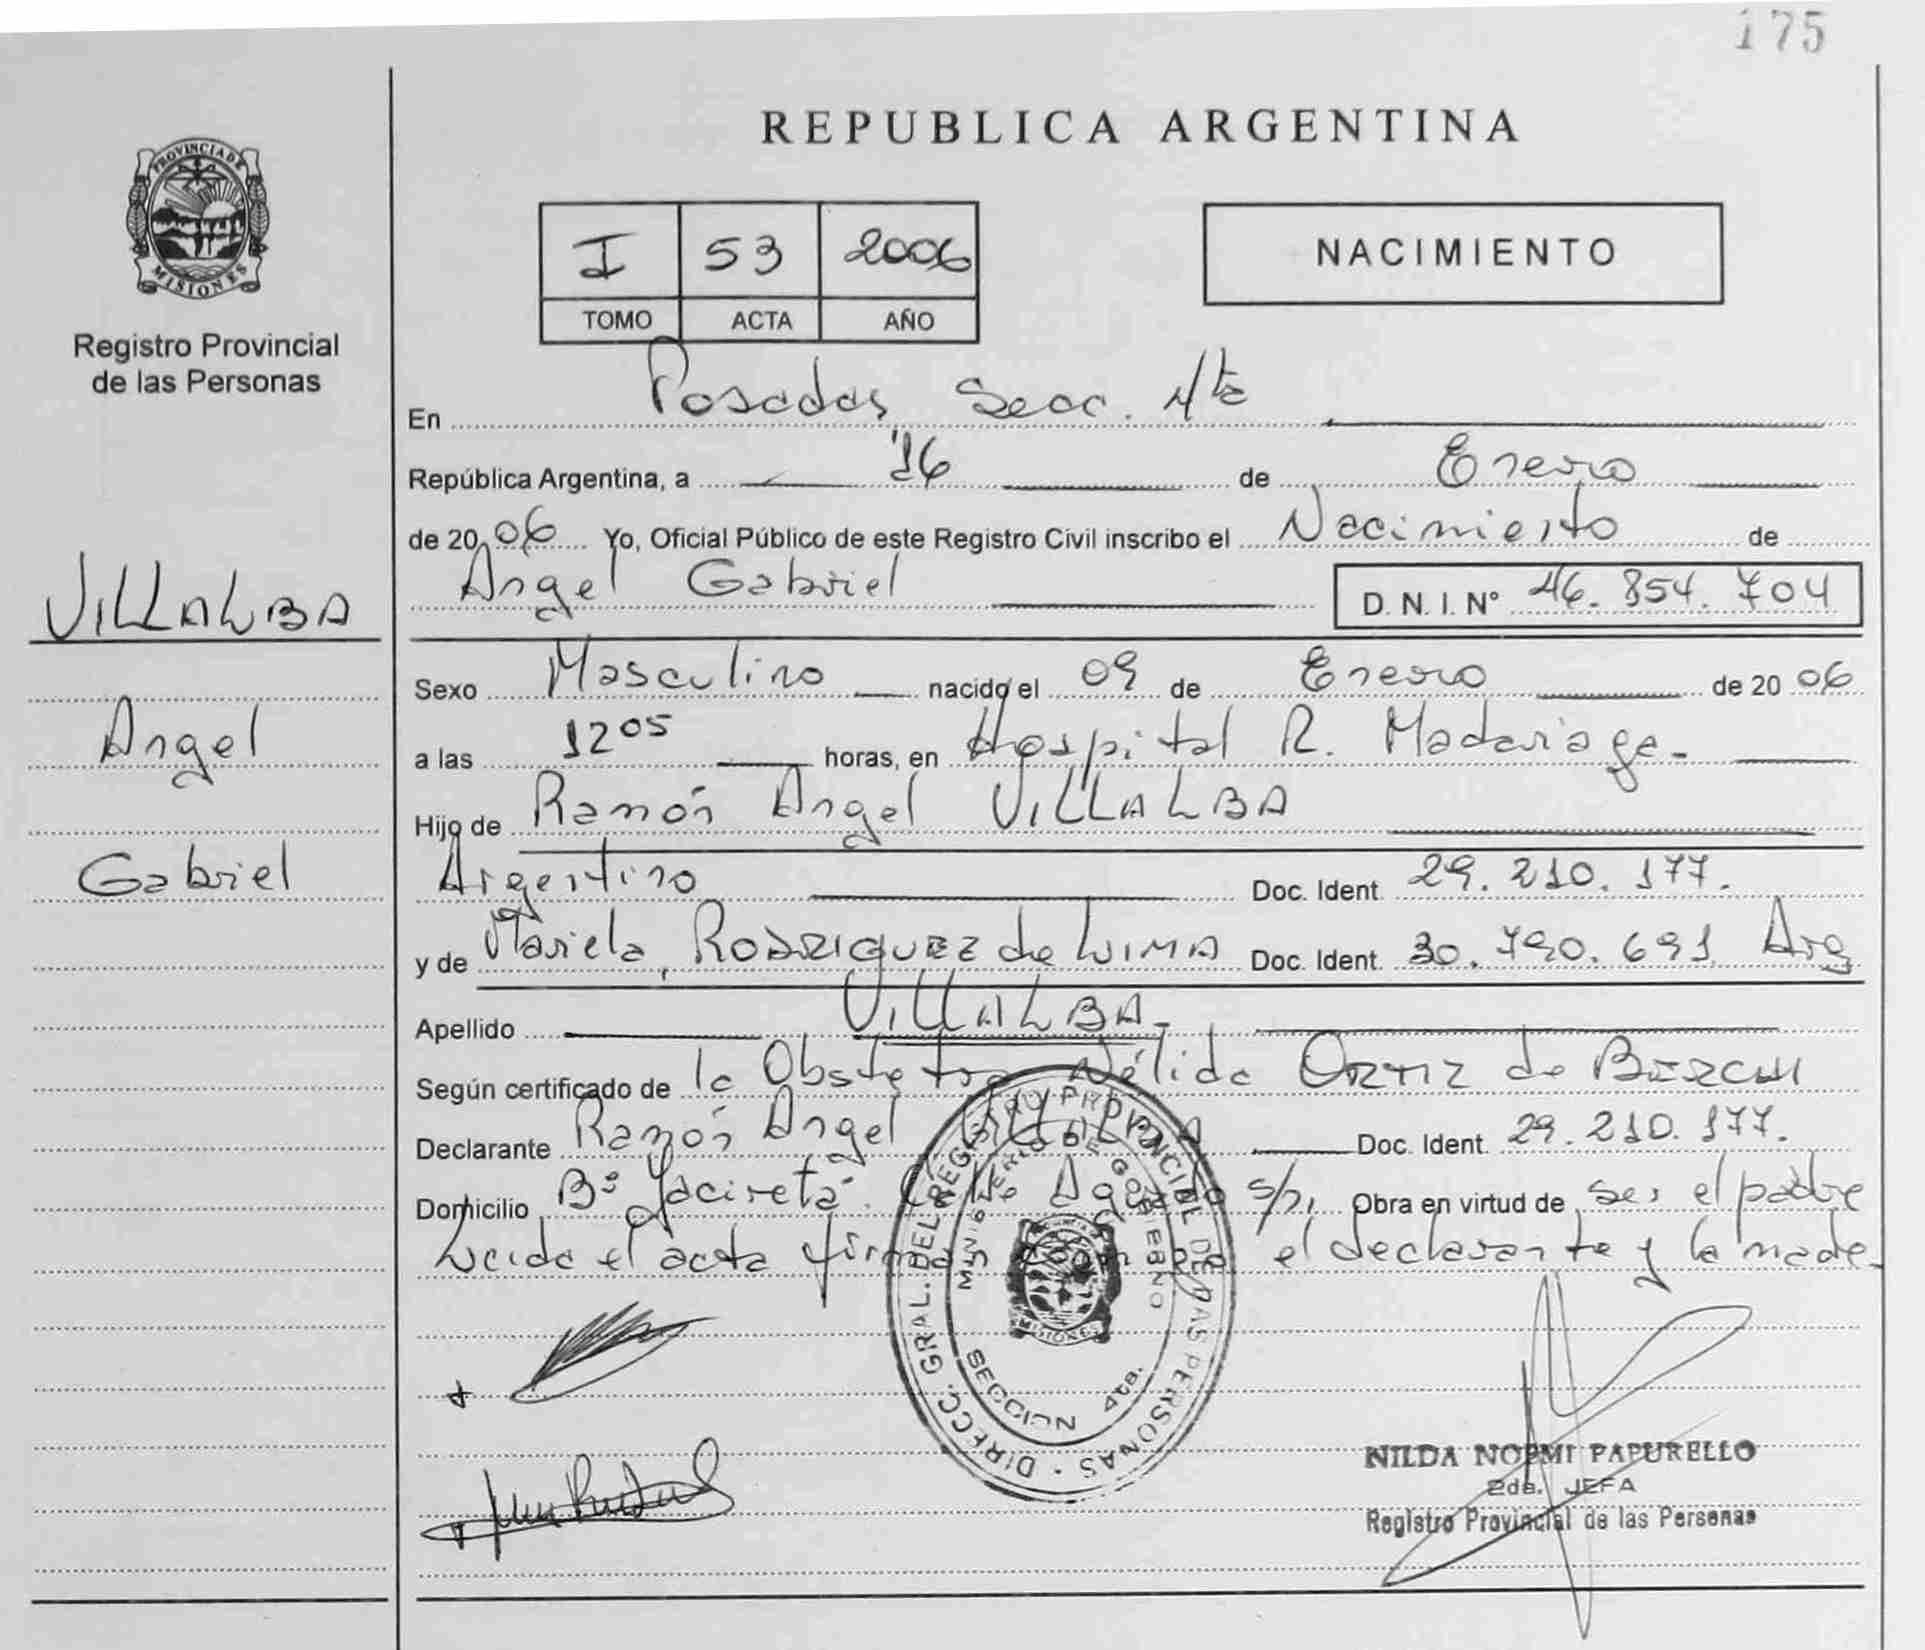 175
PROVINCIA DE
MISIONES
Registro Provincial
de las Personas
VILLALBA
Angel
Gabriel
REPUBLICA ARGENTINA
I 53 2006
TOMO ACTA AÑO
NACIMIENTO
En Posadas Secc. 4ta
República Argentina, a 16 de Enero
de 2006 Yo, Oficial Público de este Registro Civil inscribo el Nacimiento de
Angel Gabriel D. N. I. N° 46.854.704
Sexo Masculino nacido el 09 de Enero de 2006
a las 1205 horas, en Hospital R. Madariaga-
Hijo de Ramón Angel VILLALBA
Argentino Doc. Ident. 29.210.177.
y de Mariela, RODRIGUEZ de LIMA Doc. Ident. 30.790.691 Arg
Apellido VILLALBA-
Según certificado de la Obstetra Nélida ORTIZ de
Declarante Ramón Angel VILLALBA Doc. Ident. 29.210.177.
Domicilio B° Yacireta. Calle s/n, Obra en virtud de ser el padre
Leida el acta firman el declarante y la madre
DIRECC. GRAL. DEL REGISTRO PROVINCIAL DE LAS PERSONAS
MINISTERIO DE GOBIERNO
MISIONES
SECCION 4ta.
NILDA NOEMI PAPURELLO
2da. JEFA
Registro Provincial de las Personas